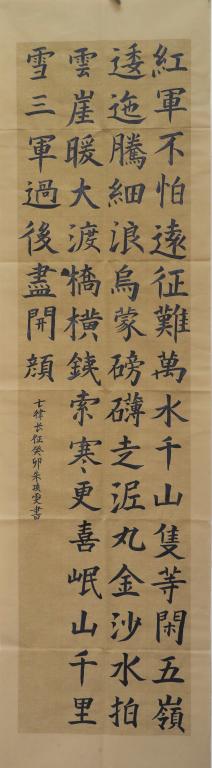 紅軍不怕遠征難萬水千山隻等閑五嶺
逶迤騰細浪烏蒙磅礴走泥丸金沙水拍
雲崖暖大渡橋橫鐵索寒更喜岷山千里
雪三軍過後盡開顔
七律长征癸卯朱瑛雯書